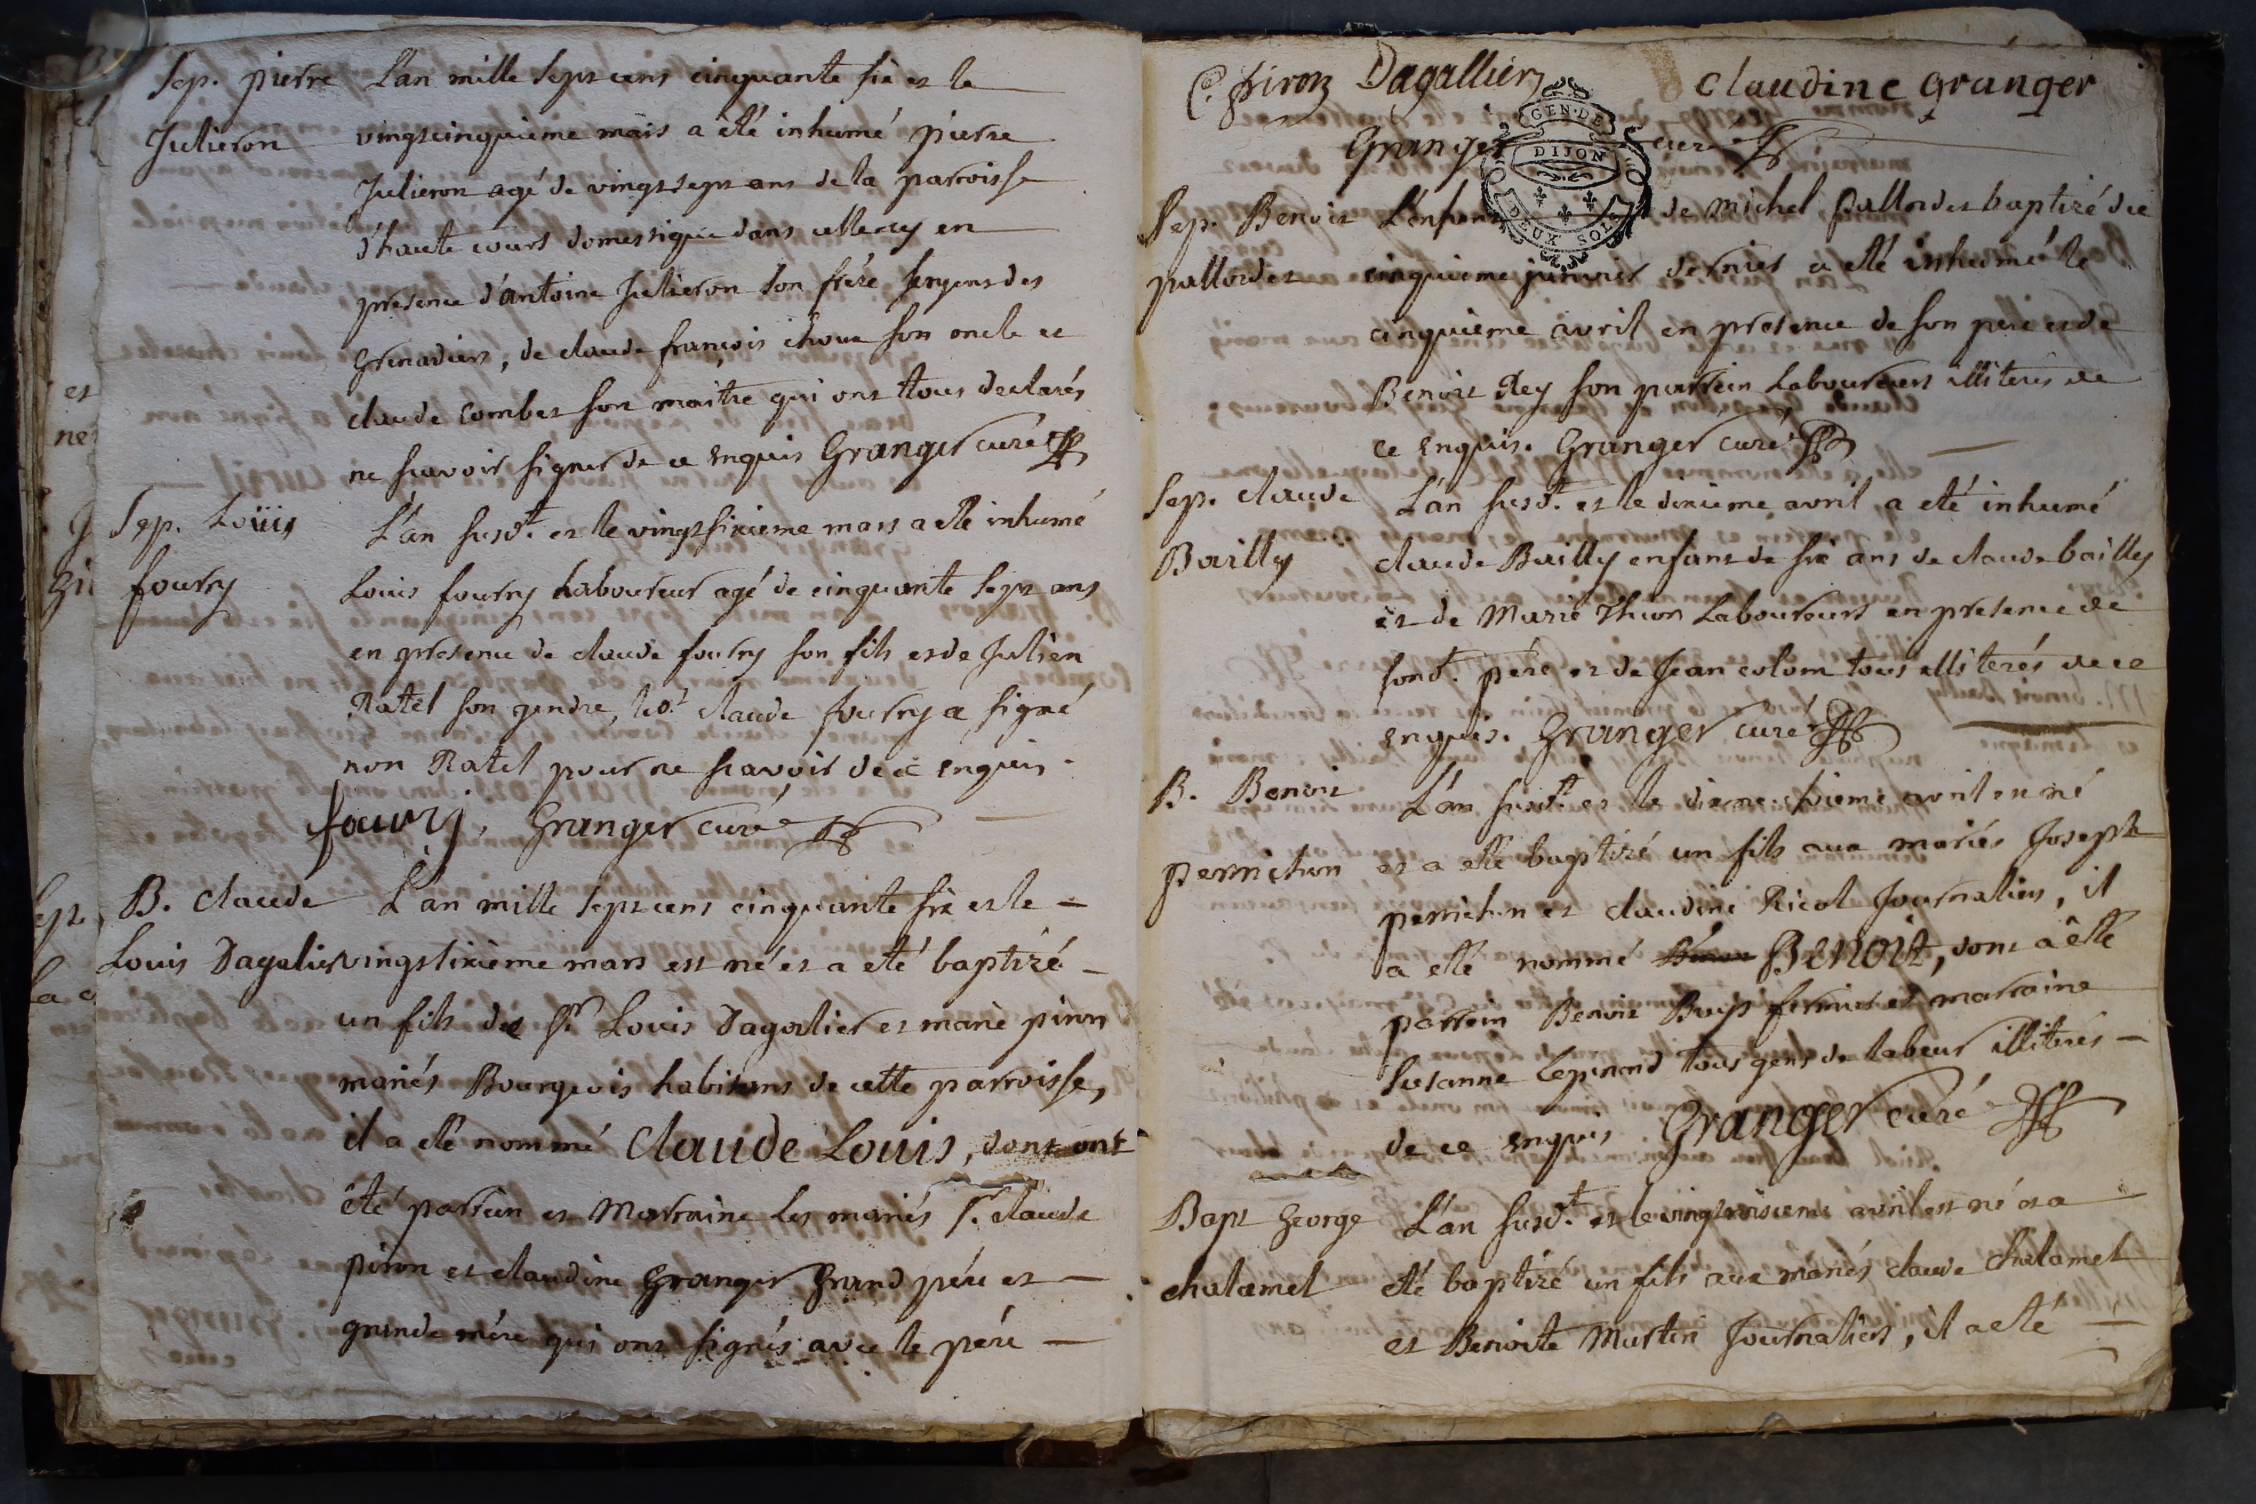 Sep. pierre L'an mille sept cens cinquante six et le
Julieron vingtcinquieme mars a été inhumé pierre
Julieron agé de vingt sept ans de la parroisse
d'haute cours domestique dans cellecy en
presence d'antoine Julieron son frére sergent des
Grenadiers, de claude françois son oncle et
claude Combet son maitre qui ont tous declarés
ne scavoir signer de ce enquis Granger curé
Sep. Loüis L'an susd.t et le vingtsixieme mars a eté inhumé
fourry Louis fourry Laboureur agé de cinquante sept ans
en presence de claude fourry son fils et de Julien
Ratel son gendre, led.t claude fourry a signé
non Ratel pour ne scavoir de ce enquis.
fourry, Granger curé
B. Claude L'an mille sept cens cinquante six et le
Louis Dagalier vingtsixième mars est né et a eté baptizé
un fils de Sr. Louis Dagalier et marie piron
mariés Bourgeois habitans de cette parroisse,
il a eté nommé Claude Louis, dont ont
été parrein et Marraine les mariés Sr. claude
piron et claudine Granger Grand pére et
grande mére qui ont signés avec le pére
C. piron Dagallier Claudine Granger
Granger curé
GEN. DE
DIJON
DEUX SOLS
Sep. Benoit L'enfant de Michel pallordet baptizé du
pallordet cinquieme janvier dernier a eté inhumé le
cinquieme avril en presence de son pere et de
Benoit Rey son parrein Laboureurs illiterés de
ce enquis. Granger curé
Sep. claude L'an susd.t et le dixieme avril a eté inhumé
Bailly claude Bailly enfant de six ans de claude bailly
et de Marie Laboureurs en presence de
sond.t père et de Jean colom tous illiterés de ce
enquis. Granger curé
B. Benoit L'an susd.t et le avril est né
perrichon et a eté baptizé un fils aux mariés Joseph
perrichon et claudine Ricol Journaliers, il
a eté nommé BENOIT, dont a été
parrein Benoit fermier et marraine
Susanne Lepinard tous gens de labeur illiterés
de ce enquis Granger curé
Bapt George L'an susd.t et le vingtroisieme avril est né et a
chalamel eté baptizé un fils aux mariés claude Chalamel
et Benoite Martin Journaliers, il a eté